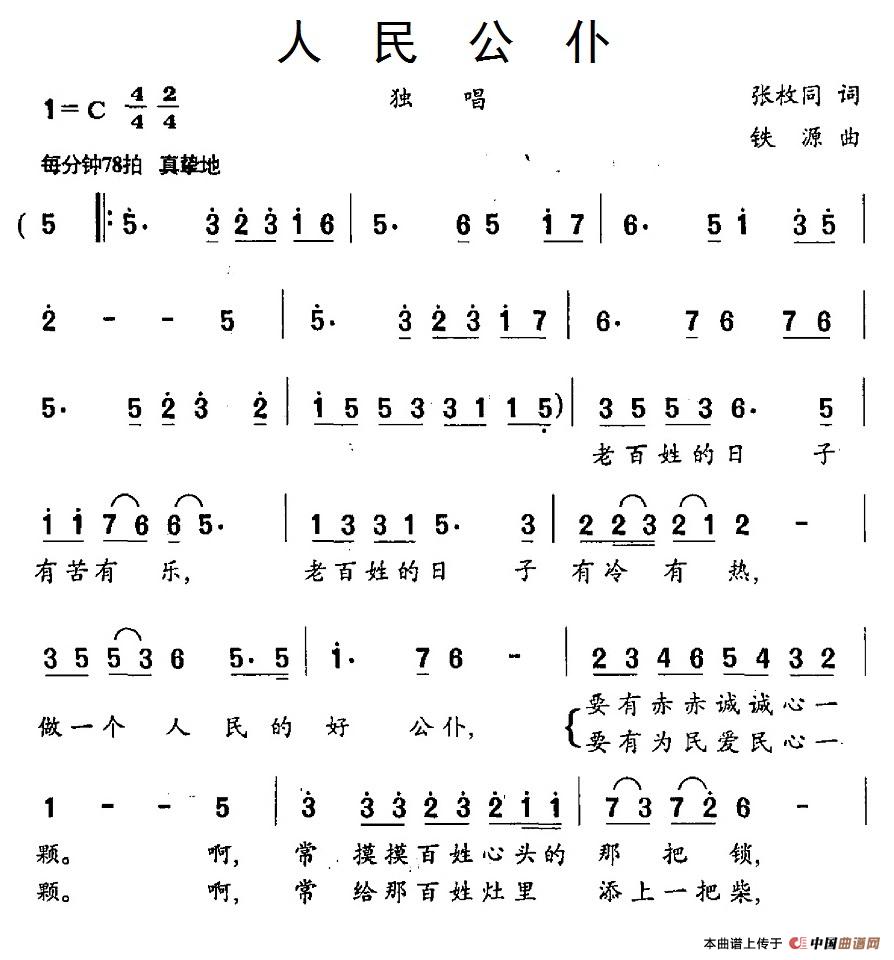 人民公仆
1=C 4/4 2/4 独唱 张枚同 词
铁源 曲
每分钟78拍 真挚地
( 5 ‖: 5̇. 3̇ 2̇ 3̇ 1̇ 6 | 5. 6 5 1̇ 7 | 6. 5 1̇ 3̇ 5̇ |
2̇ - - 5 | 5̇. 3̇ 2̇ 3̇ 1̇ 7 | 6. 7 6 7 6 |
5. 5 2̇ 3̇ 2̇ | 1̇ 5 5 3 3 1 1 5̣ ) | 3 5 5 3 6. 5 |
老百姓的日子
1̇ 1̇ 7 6 6 5. | 1 3 3 1 5. 3 | 2 2 3 2 1 2 - |
有苦有乐, 老百姓的日子有冷有热,
3 5 5 3 6 5. 5 | 1̇. 7 6 - | 2 3 4 6 5 4 3 2 |
做一个人民的好公仆, { 要有赤赤诚诚心一
要有为民爱民心一
1 - - 5 | 3̇ 3̇ 3̇ 2̇ 3̇ 2̇ 1̇ 1̇ | 7 3 7 2̇ 6 - |
颗。 啊, 常摸摸百姓心头的那把锁,
颗。 啊, 常给那百姓灶里添上一把柴,
本曲谱上传于 中国曲谱网